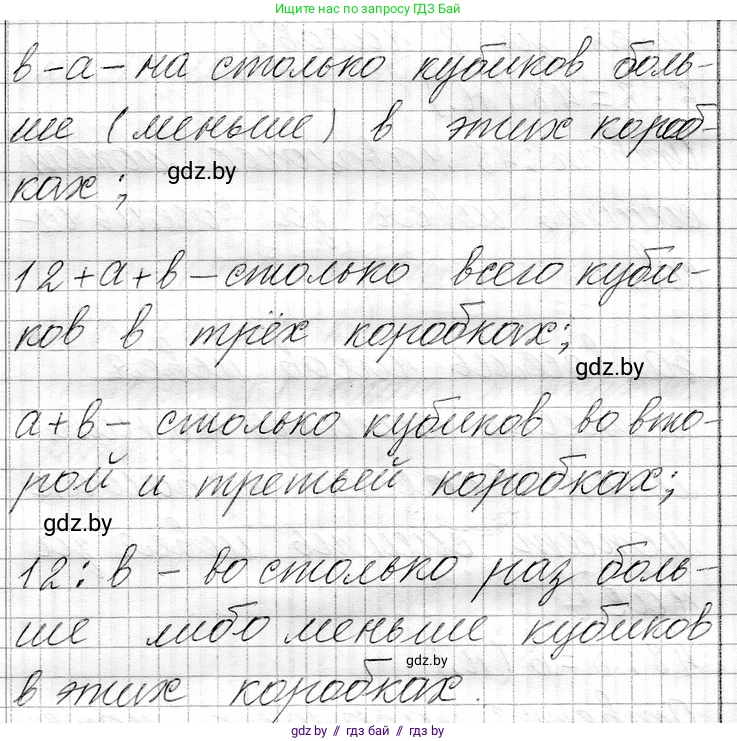 Ищите нас по запросу ГДЗ Бай
в-а - на столько кубиков боль-
ше (меньше) в этих короб-
ках;
gdz.by
12+а+в - столько всего куби-
ков в трёх коробках;
gdz.by
а+в - столько кубиков во вто-
рой и третьей коробках;
gdz.by
12:в - во столько раз боль-
ше либо меньше кубиков
gdz.by
в этих коробках.
gdz.by // гдз бай // гдз by